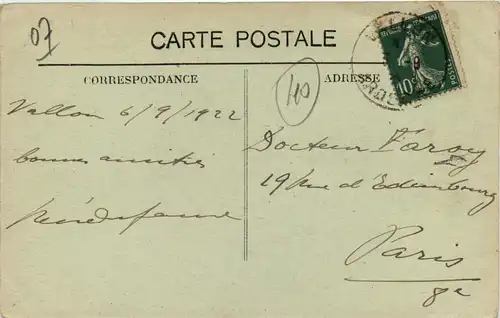 07
CARTE POSTALE
CORRESPONDANCE
ADRESSE
40
10c
Vallon 6/9/1922
bonnes amitiés
Docteur Faroy
19 rue d'Edimbourg
Paris
8e